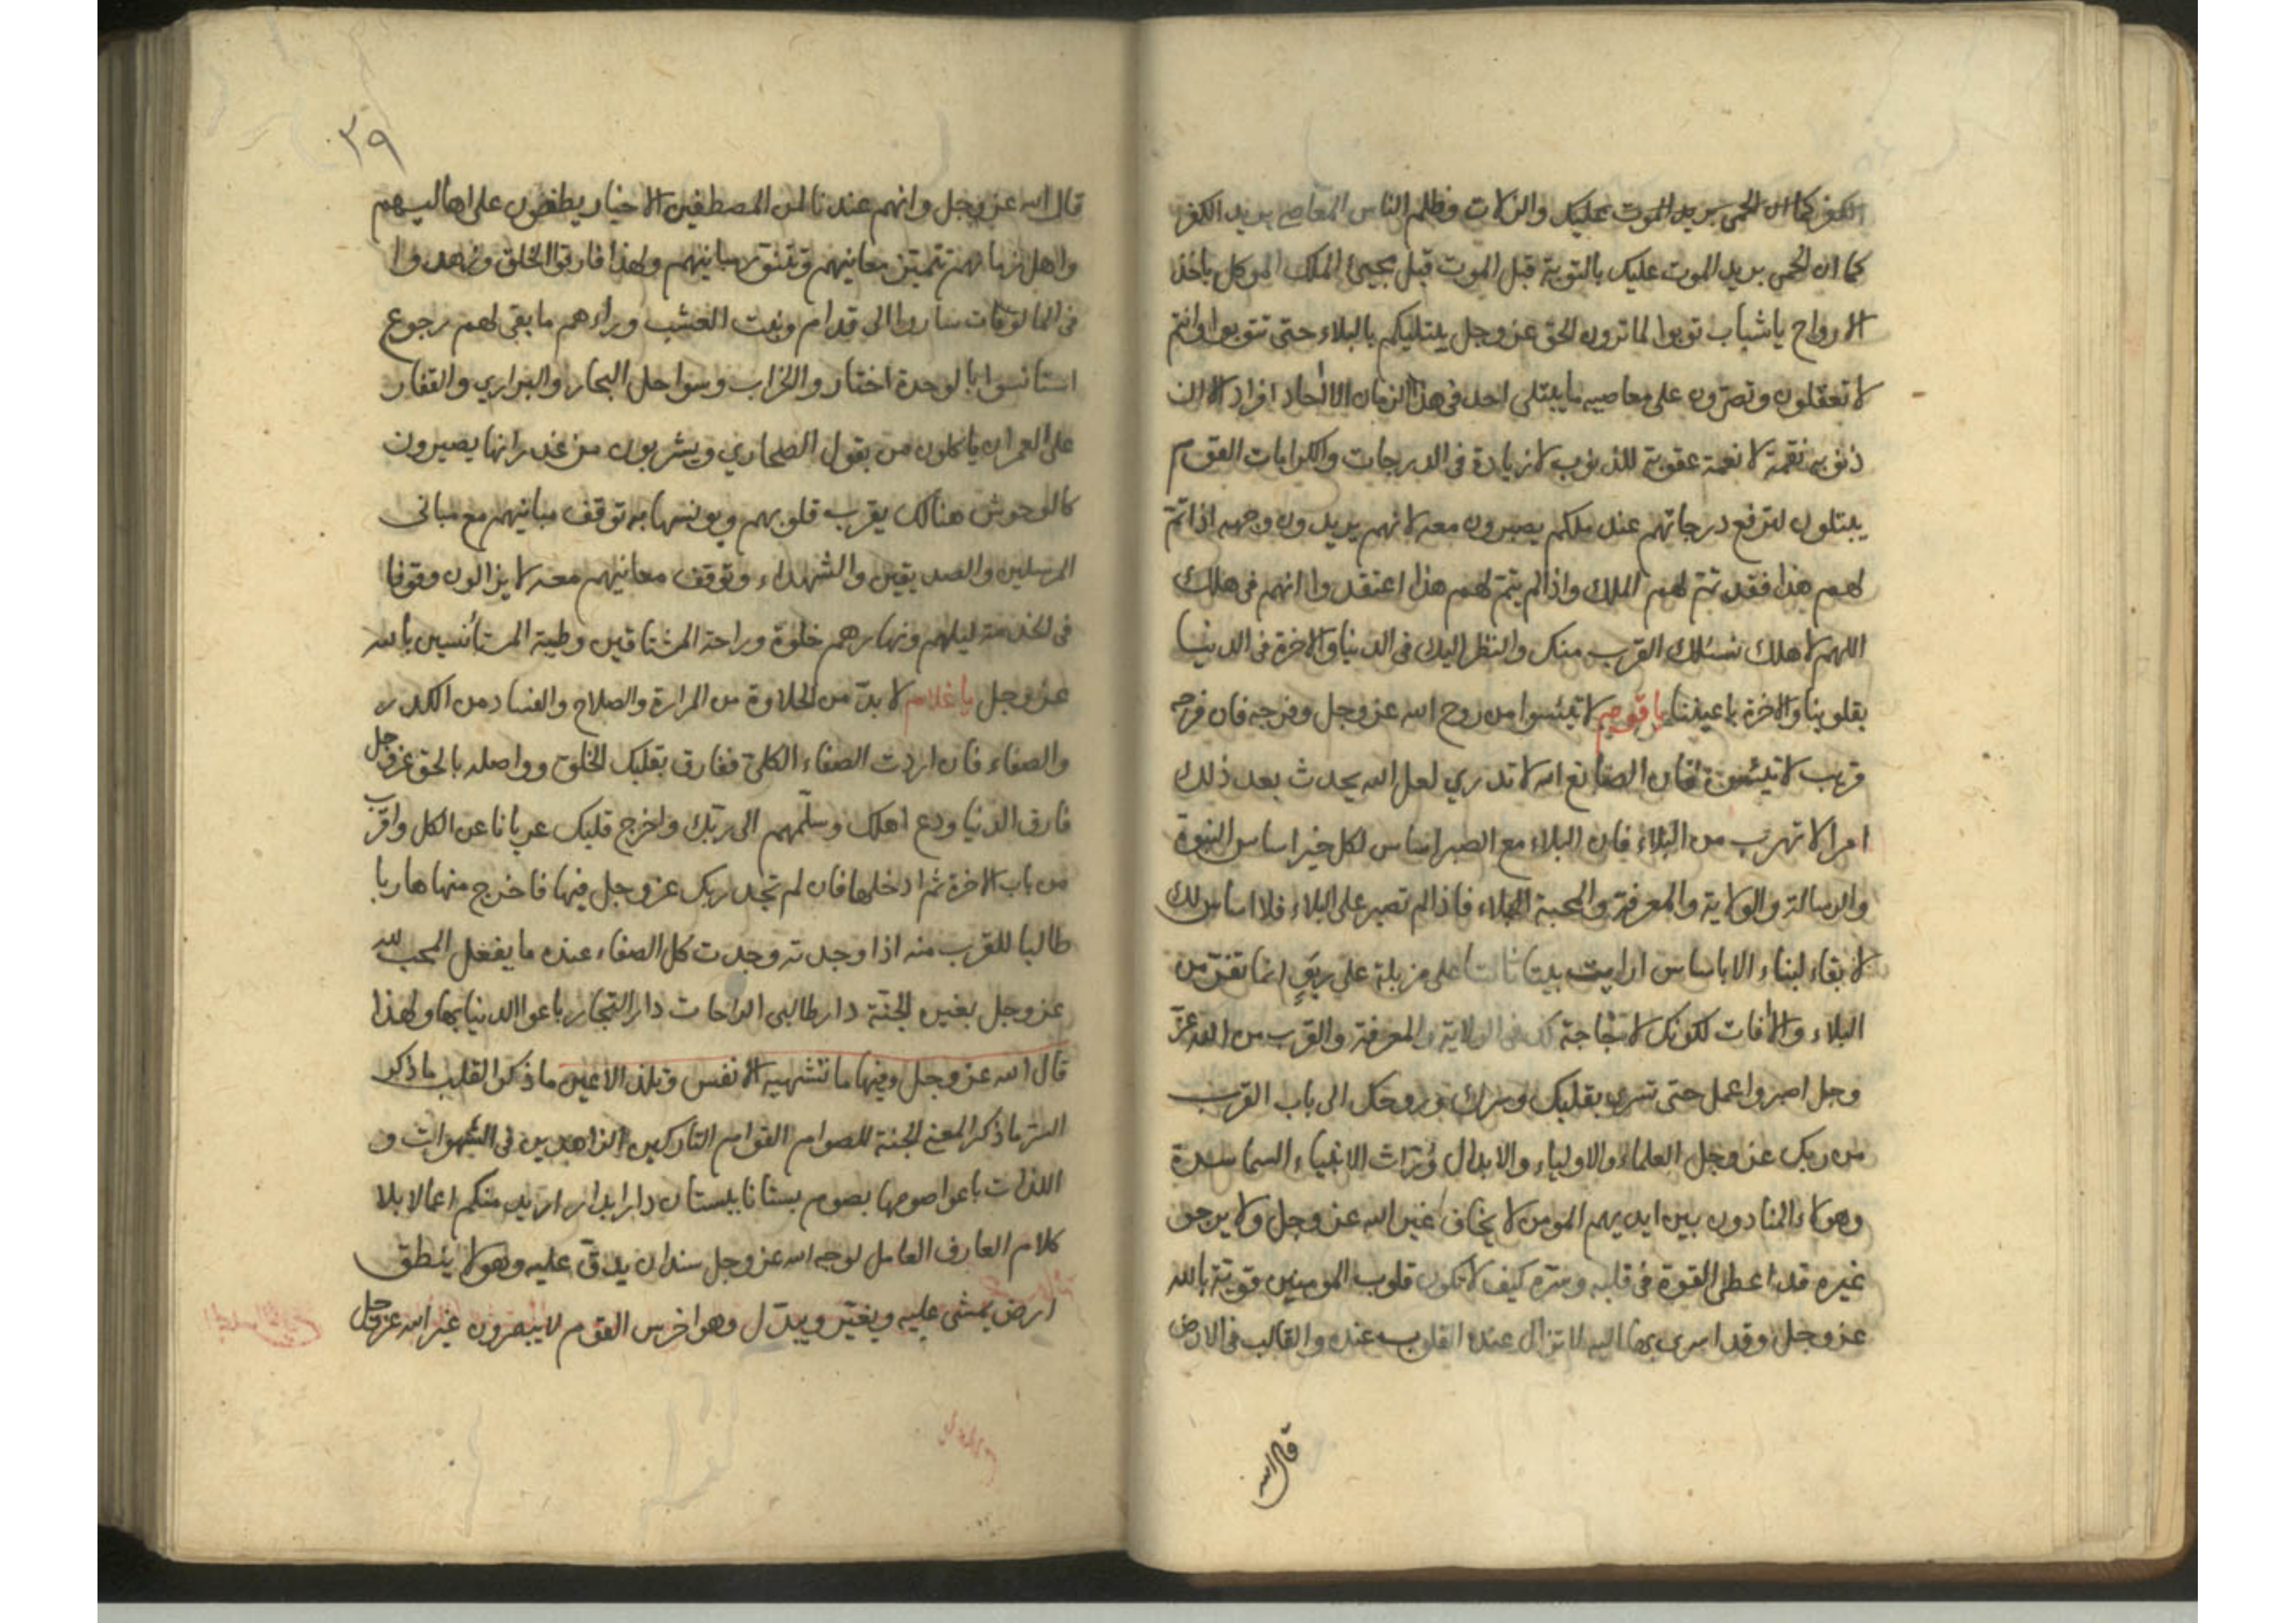 الكفر كما ان الحمى بريد الموت عليك والزلات وظلم الناس المعاصي بريد الكفر
كما ان الحمى بريد الموت عليك بالتوبة قبل الموت قبل مجيئ الملك الموكل باخذ
الارواح يا شباب توبوا لما ترون الحق عز وجل يبتليكم بالبلاء حتى تتوبوا وانتم
لا تعقلون وتصرّون على معاصيه ما يبتلى احد في هذا الزمان الا الاحاد افراد الا ان
ذنوبه نقمة لا نعمة عقوبة للذنوب لا زيادة في الدرجات والكرامات القوم
يبتلون لترفع درجاتهم عند ملكهم يصبرون معه لانهم يريدون وجهه اذا تم
لهم هذا فقد تم لهم الملك واذا لم يتم لهم هذا اعتقدوا انهم في هلك
اللهم لا هلك نسئلك القرب منك والنظر اليك في الدنيا والاخرة في الدنيا
بقلوبنا والاخرة باعيننا يا قوم لا تيئسوا من روح الله عز وجل وفرجه فان فرجه
قريب لا تيئسوا فان الصانع الله لا تدري لعل الله يحدث بعد ذلك
امرا لا تهرب من البلاء فان البلاء مع الصبر اساس لكل خير اساس النبوة
والرسالة والولاية والمعرفة والمحبة البلاء فاذا لم تصبر على البلاء فلا اساس لك
لا بقاء لبناء الا باساس ارايت بيتا ثابتا على مزبلة على ربوة انما تفر من
البلاء والافات لكونك لا حاجة لك في الولاية والمعرفة والقرب من الله عز
وجل اصبر واعمل حتى تسري بقلبك وسرك وروحك الى باب القرب
من ربك عز وجل العلماء والاولياء والابدال وُرّاث الانبياء الانبياء السماسرة
وهولاء المنادون بين ايديهم المومن لا يخاف غير الله عز وجل ولا يرجو
غيره قد اعطي القوة في قلبه وسرّه كيف لا تكون قلوب المومنين قوية بالله
عز وجل وقد اسرى بها اليه لا تزال عنده القلوب عنده والقالب في الارض
قال الله
٣٩
قال الله عز وجل وانهم عندنا لمن المصطفين الاخيار يصطفون على اهاليهم
واهل زمانهم تتميّز معانيهم وتتنوّر مبانيهم ولهذا فارقوا الخلق وزهدوا
في المالوفات ساروا الى قدام ونبت العشب وراءهم ما بقى لهم رجوع
استانسوا بالوحدة اختاروا الخراب وسواحل البحار والبراري والقفار
على العمران ياكلون من بقول الصحاري ويشربون من غدرانها يصيرون
كالوحوش هنالك يقرب قلوبهم ويونسها به توقف مبانيهم مع مباني
المرسلين والصديقين والشهداء وتوقف معانيهم معه لا يزالون وقوفا
في الخدمة ليلهم ونهارهم خلوة وراحة المشتاقين وطيبة المستأنسين بالله
عز وجل يا غلام لا بدّ من الحلاوة من المرارة والصلاح والفساد من الكدر
والصفاء فان اردت الصفاء الكلي ففارق بقلبك الخلق وواصله بالحق عز وجل
فارق الدنيا ودع اهلك وسلّمهم الى ربّك واخرج قلبك عريانا عن الكل واقرب
من باب الاخرة ثم ادخلها فان لم تجد ربك عز وجل فيها فاخرج منها هاربا
طالبا للقرب منه اذا وجدته وجدت كل الصفاء عنده ما يفعل المحب لله
عز وجل بغيره الجنّة دار طالبي الراحات دار التجار باعوا الدنيا بها ولهذا
قال الله عز وجل وفيها ما تشتهيه الانفس وتلذ الاعين ما ذكر القلب ما ذكر
السرّ ما ذكر المعنى الجنة للصوام القوام التاركين الزاهدين في الشهوات و
اللذات باعوا صومها بصوم بستانا ببستان دارا بدار اريد منكم اعمالا بلا
كلام العارف العامل لوجه الله عز وجل سندان يدقّ عليه وهو لا ينطق
ارض يمشى عليه ويغيّر ويبدّل وهو اخرس القوم لا يبصرون غير الله عز وجل